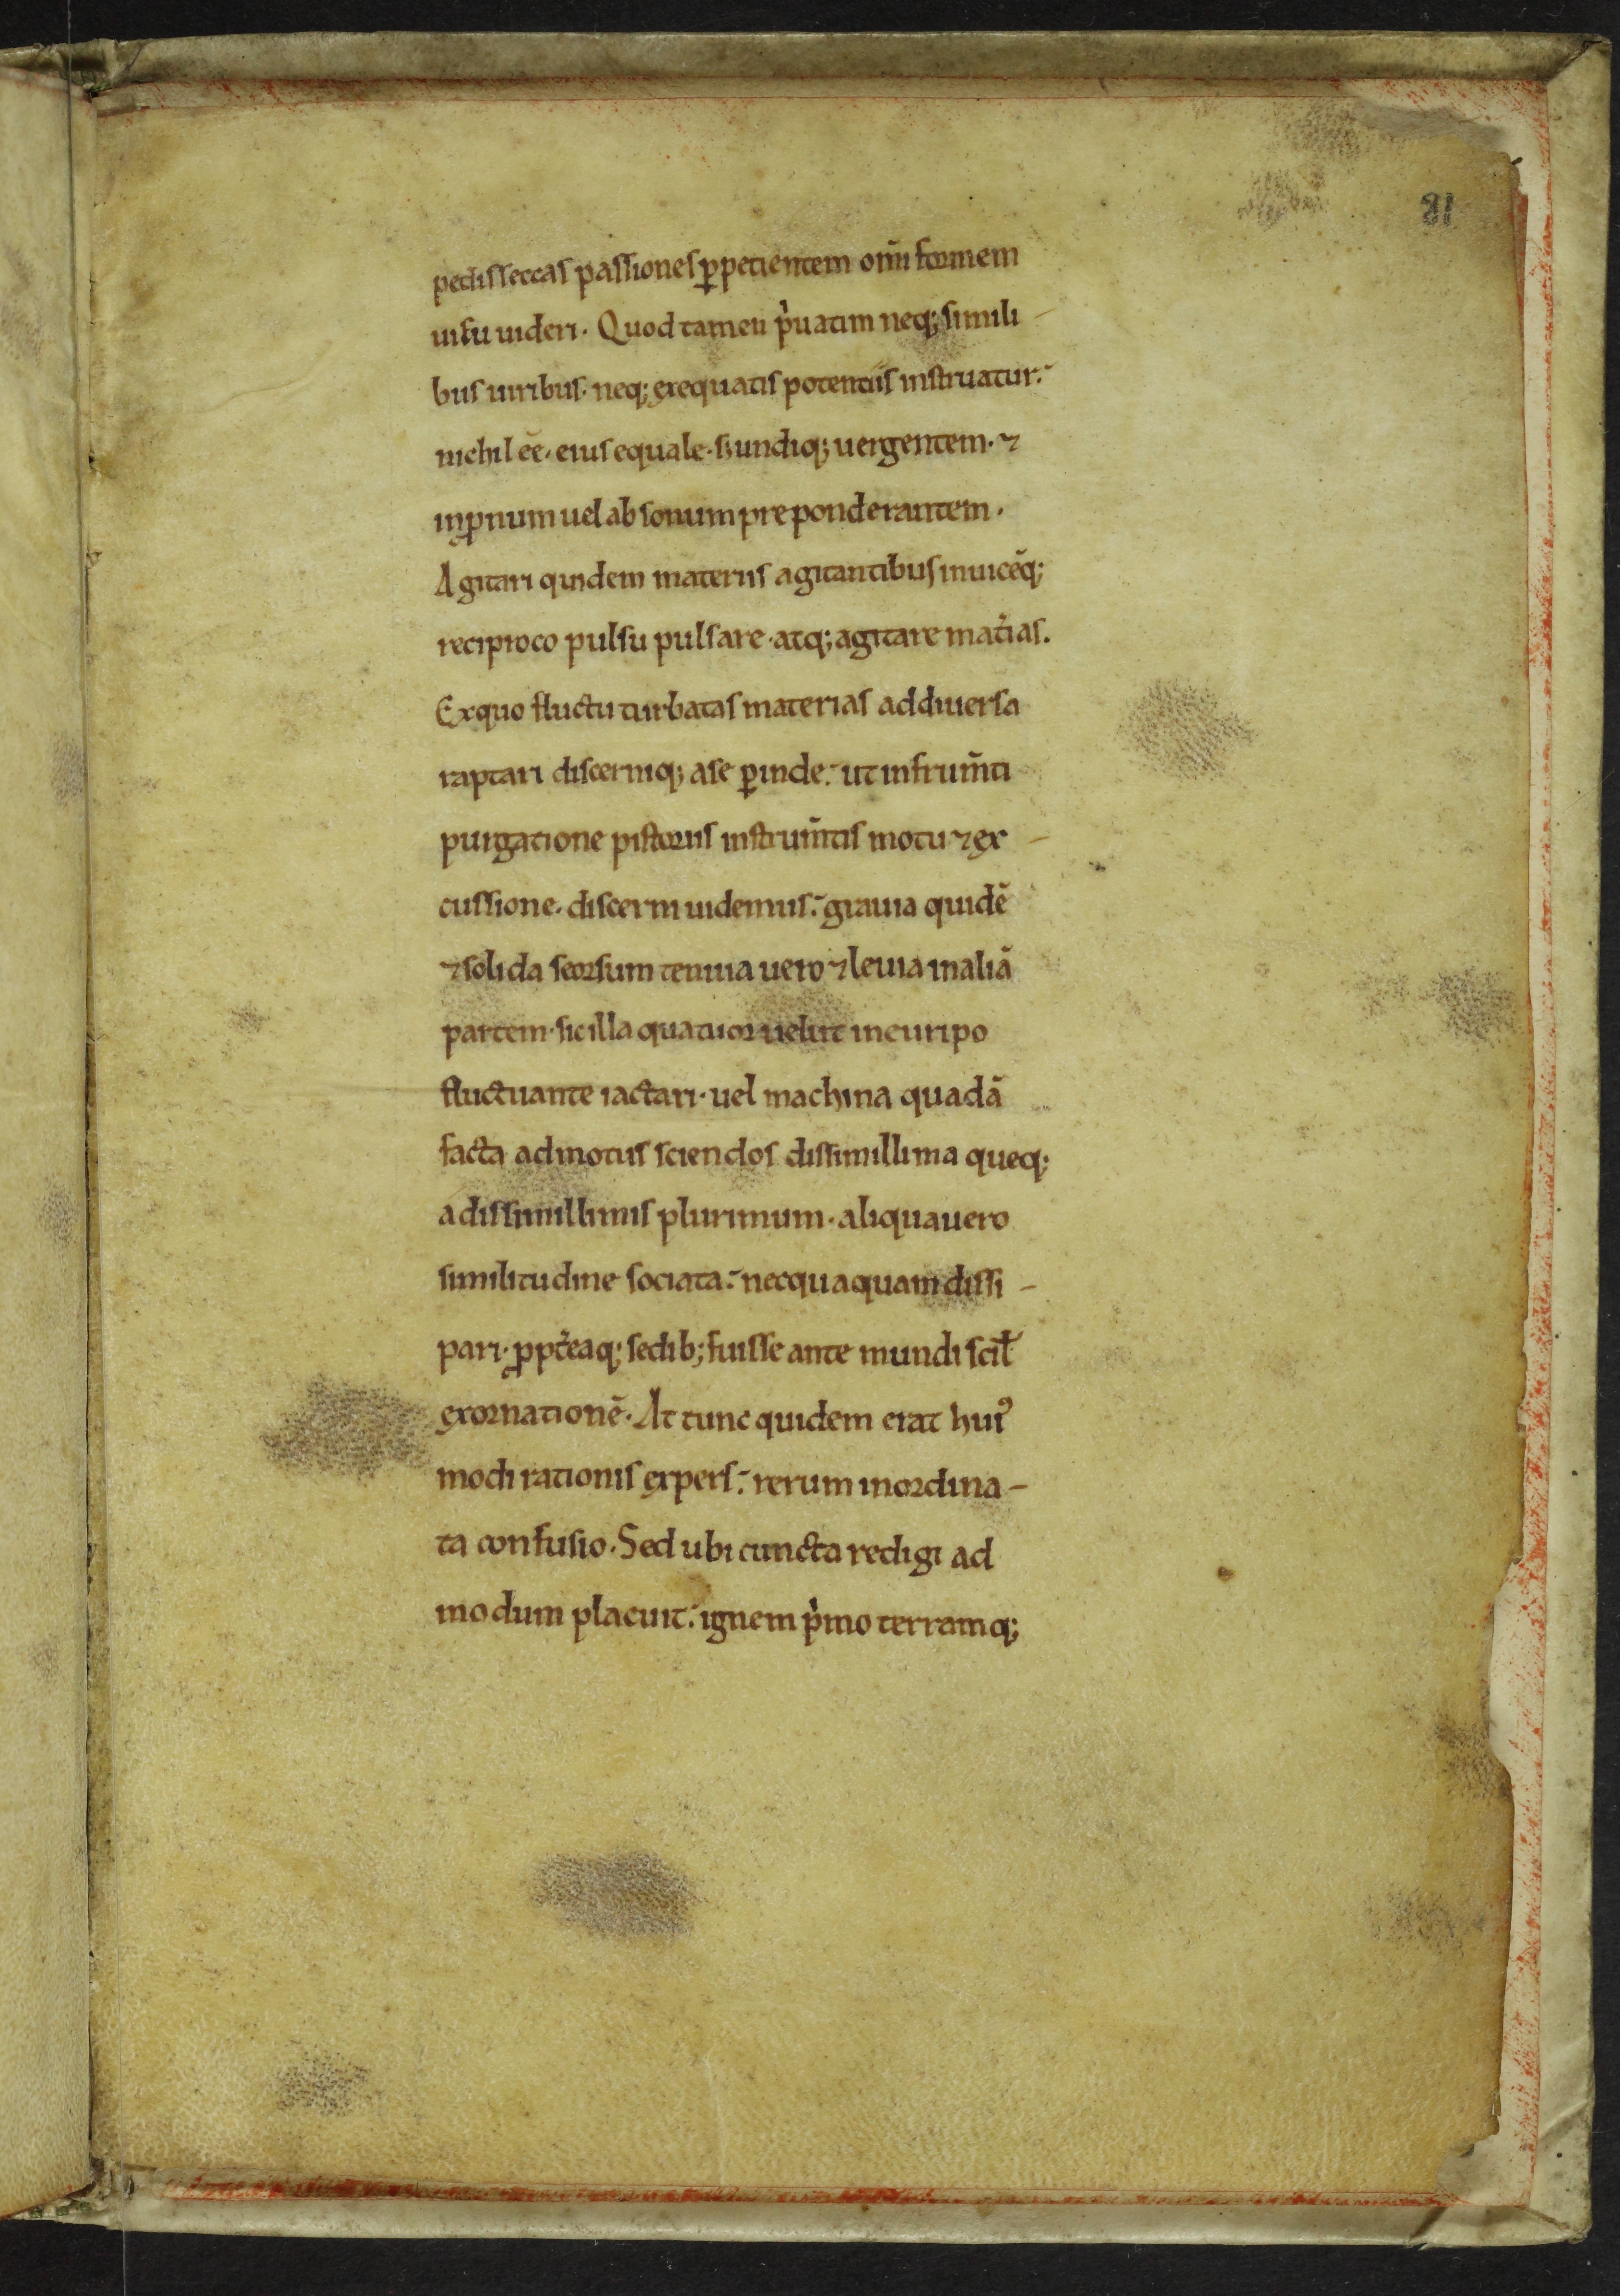 81
pedissecas passiones ꝑpetientem om̅i formem
uisu uideri. Quod tamen p̓uatim neq; simili-
bus uiribus. neq; exequatis potentiis instruatur.
nichil ee̅. eius equale. s; undiq; uergentem. ⁊
inꝓnum uel absonum preponderantem.
Agitari quidem materiis agitantibus inuice̅q;
reciproco pulsu pulsare. atq; agitare mat̓ias.
Ex quo fluctu turbatas materias ad diuersa
raptari discerniq; a se ꝑinde. ut in frum̅ti
purgatione pistoriis instrum̅tis motu ⁊ ex-
cussione. discerni uidemus. grauia quide̅
⁊ solida seorsum tenuia uero ⁊ leuia in alia̅
partem. sic illa quatuor uelut in euripo
fluctuante iactari. uel machina quada̅
facta ad motus sciendos dissimillima queq;
a dissimillimis plurimum. aliqua uero
similitudine sociata. necquaquam dissi-
pari. ꝓpt̓eaq; sedib; fuisse ante mundi scil̅
exornatione̅. At tunc quidem erat hui᾽
modi rationis expers. rerum inordina-
ta confusio. Sed ubi cuncta redigi ad
modum placuit. ignem p̓mo terramq;